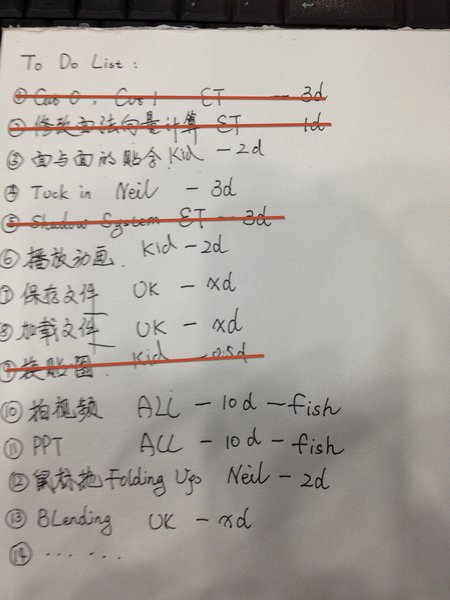 To Do List :
① Cas 0 , Cas 1 ET — 3d
② 修改面法向量计算 ET 1d
③ 面与面的贴合 Kid - 2d
④ Tuck in Neil - 3d
⑤ Shadow System ET - 3d
⑥ 播放动画. Kid - 2d
⑦ 保存文件 UK - xd
⑧ 加载文件 UK - xd
⑨ 换贴图. Kid - 0.5d
⑩ 拍视频 ALL - 10d - fish
⑪ PPT ALL - 10d - fish
⑫ 鼠标拖 Folding Neil - 2d
⑬ BLending UK - xd
⑭ ......